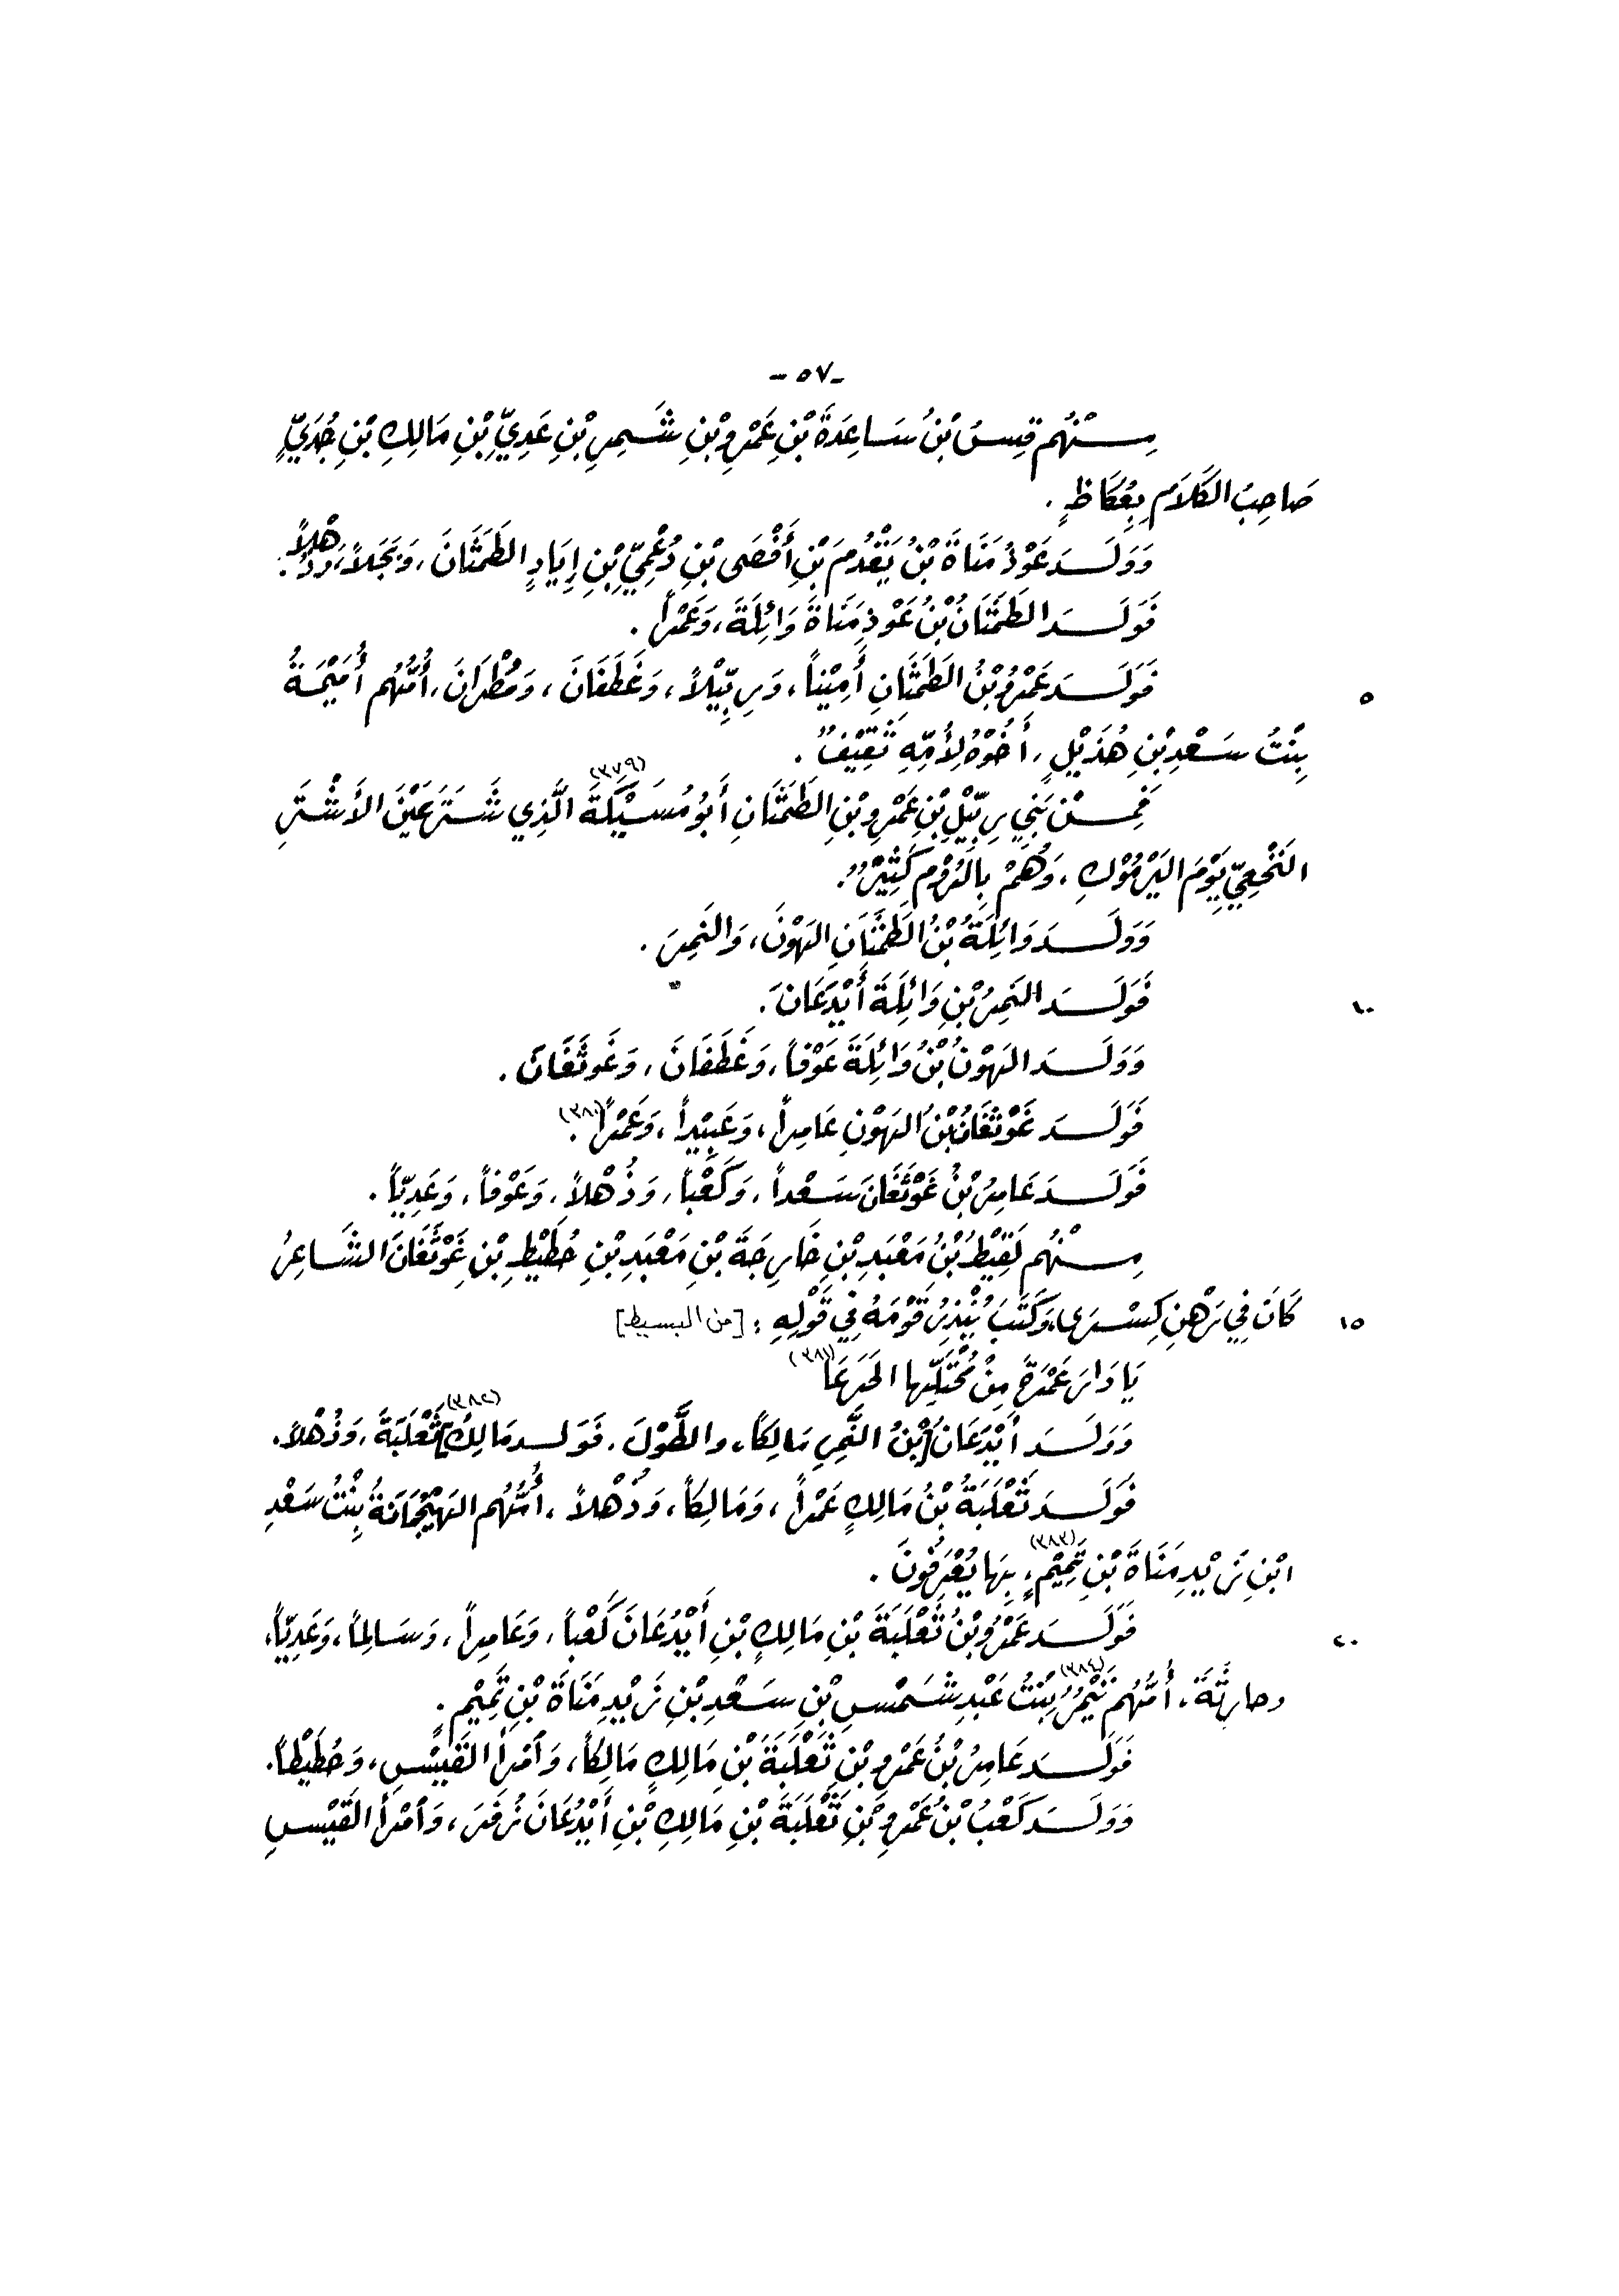 -٥٧-
مِنْهُم قِسُ بْنُ سَاعِدَةَ بْنِ عَمْرِو بْنِ شَمِرِ بْنِ عَدِيِّ بْنِ مَالِكِ بْنِ جُدَيٍّ
صَاحِبُ الكَلَامِ بِعُكَاظٍ .
وَوَلَدَ عَوْذُ مَنَاةَ بْنُ يَقْدُمَ بْنِ أَفْصَى بْنِ دُعْمِيِّ بْنِ إِيَادٍ الطَمَثَانَ، وَبَجَلاً، وَذُهْلاً .
فَوَلَدَ الطَمَثَانُ بْنُ عَوْذِ مَنَاةَ وَائِلَةَ، وَعَمْراً .
٥ فَوَلَدَ عَمْرُو بْنُ الطَمَثَانِ أَمِيْناً، وَرِبِّيْلاً، وَغَطَفَانَ، وَمُطْرَانَ، أُمُّهُم أُمَيْمَةُ
بِنْتُ سَعْدِ بْنِ هُذَيْلٍ، أَخُوْهُ لِأُمِّهِ ثَقِيْفٌ .
فَمِنْ بَنِي رِبِّيْلِ بْنِ عَمْرِو بْنِ الطَمَثَانِ أَبُو مُسَيْكَةَ (٣٧٩) الَّذِي شَتَرَ عَيْنَ الأَشْتَرِ
النَخَعِيِّ يَوْمَ اليَرْمُوْكِ، وَهُمْ بِالرُوْمِ كَثِيْرٌ .
وَوَلَدَ وَائِلَةُ بْنُ الطَمَثَانِ الهَوْنَ، وَالنَمِرَ .
١٠ فَوَلَدَ النَمِرُ بْنِ وَائِلَةَ أَيْدَعَانَ .
وَوَلَدَ الهَوْنُ بْنُ وَائِلَةَ عَوْفاً، وَغَطَفَانَ، وَغَوثَغَانَ .
فَوَلَدَ غَوْثَغَانُ بْنُ الهَوْنِ عَامِراً، وَعَبِيْداً، وَعَمْراً (٣٨٠) .
فَوَلَدَ عَامِرُ بْنُ غَوْثَغَانَ سَعْداً، وَكَعْباً، وَذُهْلاً، وَعَوْفاً، وَعَدِيّاً .
مِنْهُم لَقِيْطُ بْنُ مَعْبَدِ بْنِ خَارِجَةَ بْنِ مَعْبَدِ بْنِ حُطَيْطِ بْنِ غَوْثَغَانَ الشَاعِرُ
١٥ كَانَ فِي رَهْنِ كِسْرَى، وَكَتَبَ يُنْذِرُ قَوْمَهُ فِي قَوْلِهِ : [من البسيط]
يَا دَارَ عَمْرَةَ مِنْ مُحْتَلِّهَا الجَرَعَا (٣٨١)
وَوَلَدَ أَيْدَعَانُ [بْنُ النَّمِرِ مَالِكاً، والطَّوْلَ، فَوَلد مَالِكُ] (٣٨٢) ثَعْلَبَةَ، وَذُهْلاً .
فَوَلَدَ ثَعْلَبَةُ بْنُ مَالِكٍ عَمْراً، وَمَالِكاً، وَذُهْلاً، أُمُّهُم الهَيْجُمَانَةُ بِنْتُ سَعْدِ
ابْنِ زَيْدِ مَنَاةَ بْنِ تَمِيْمٍ (٣٨٣)، بِهَا يُعْرَفُونَ .
٢٠ فَوَلَدَ عَمْرُو بْنُ ثَعْلَبَةَ بْنِ مَالِكِ بْنِ أَيْدُعَانَ كَعْباً، وَعَامِراً، وَسَالِماً، وَعَدِيّاً،
وحارِثَةَ، أُمُّهُم (٣٨٤) بِنْتُ عَبْدِ شَمْسِ بْنِ سَعْدِ بْنِ زَيْدِ مَنَاةَ بْنِ تَمِيْمٍ .
فَوَلَدَ عَامِرُ بْنُ عَمْرِو بْنِ ثَعْلَبَةَ بْنِ مَالِكٍ مَالِكاً، وَآمْرأَ القَيْسِ، وَحُطَيْطاً .
وَوَلَدَ كَعْبُ بْنُ عَمْرِو بْنِ ثَعْلَبَةَ بْنِ مَالِكِ بْنِ أَيْدُعَانَ زُفَرَ، وَآمْرأَ القَيْسِ